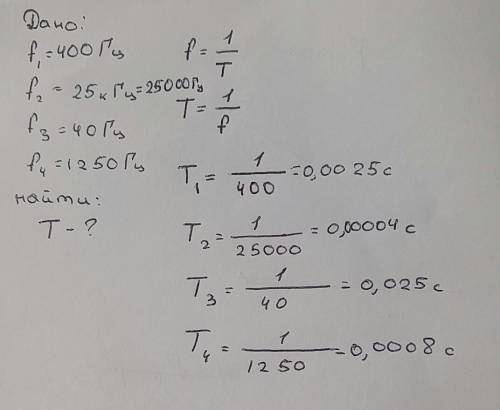 Дано:
f₁ = 400 Гц
f₂ = 25 кГц = 25000 Гц
f₃ = 40 Гц
f₄ = 1250 Гц
найти:
T - ?
f = 1/T
T = 1/f
T₁ = 1/400 = 0,0025 с
T₂ = 1/25000 = 0,00004 с
T₃ = 1/40 = 0,025 с
T₄ = 1/1250 = 0,0008 с